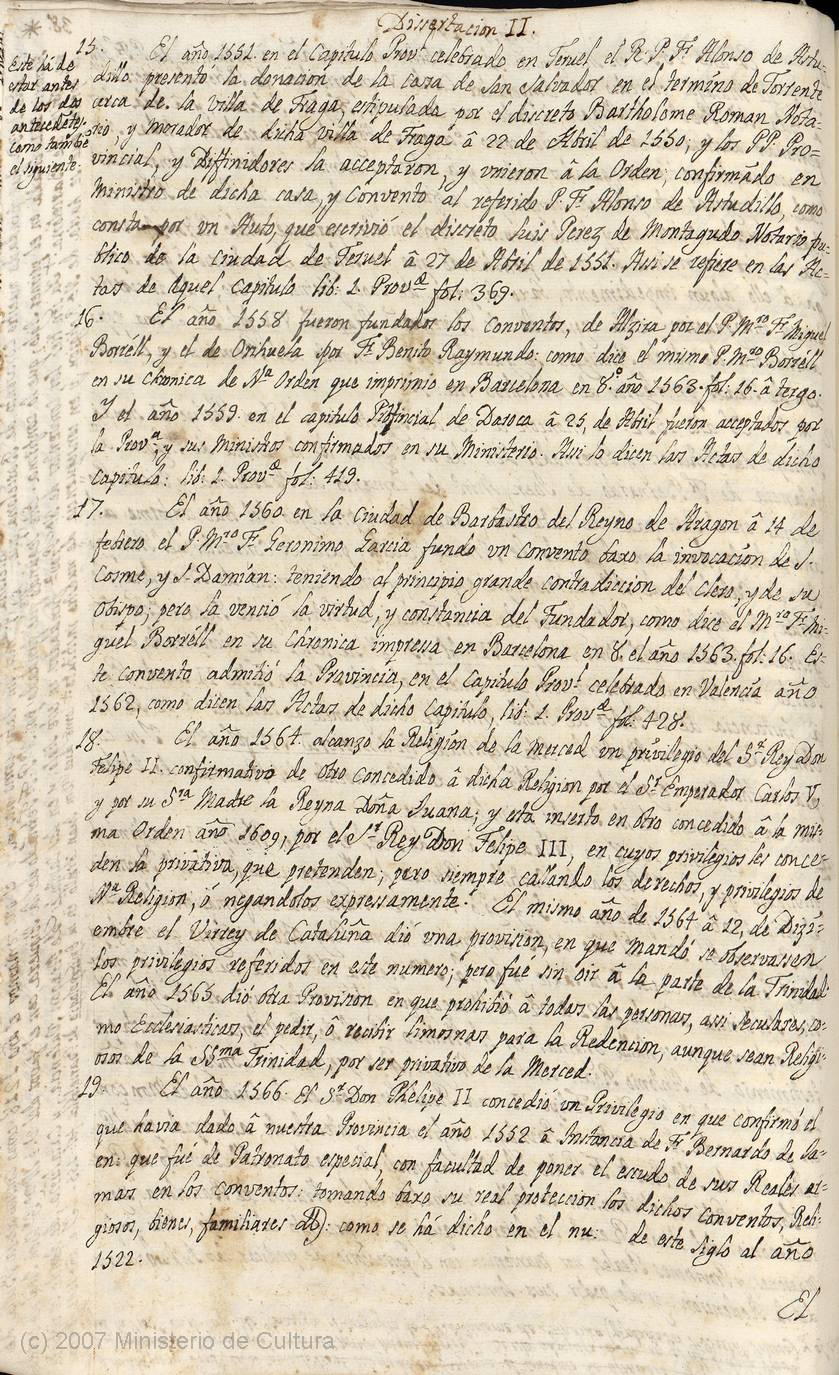 Dissertacion II.
Este há de
estar antes
de los dos
antecedetes,
como tambe
el siguiente.
15. El año 1551. en el Capitulo Provl. celebrado en Teruel el R. P. Fr. Alonso de Astu-
dillo presento la donacion de la casa de San Salvador en el termino de Torrente
cerca de la villa de Fraga, estipulada por el discreto Bartholome Roman Nota-
rio, y morador de dicha villa de Fraga â 22 de Abril de 1550, y los PP. Pro=
vincial, y Diffinidores la acceptaron, y vnieron â la Orden; confirmãdo en
Ministro de dicha casa, y Convento al referido P. Fr. Alonso de Astudillo, como
consta por vn Auto, que escrivió el discreto Luis Perez de Montagudo Notario pu-
blico de la ciudad de Teruel â 27 de Abril de 1551. Assi se refiere en las Ac-
tas de Aquel capitulo lib: 1. Provae fol: 369.
16. El año 1558 fueron fundados los conventos, de Alzira por el P. Mro. Fr. Miguel
Borréll, y el de Orihuela por Fr. Benito Raymundo: como dice el mismo P. Mro. Borréll
en su Chronica de Na. Orden que imprimio en Barcelona en 8.o año 1563. fol: 16. â tergo.
Y el año 1559. en el capitulo Provincial de Daroca â 25, de Abril fueron acceptados por
la Prova. y sus Ministros confirmados en su Ministerio. Assi lo dicen las Actas de dicho
capitulo: lib: 1. Provae fol: 419.
17. El año 1560 en la Ciudad de Barbastro del Reyno de Aragon â 14 de
febrero el P. Mro. Fr. Geronimo Garcia fundo vn convento baxo la invocacion de S.
Cosme, y S. Damian: teniendo al principio grande contradiccion del Clero, y de su
Obispo; pero la venció la virtud, y constancia del Fundador, como dice el Mro. Fr. Mi-
guel Borréll en su Chronica impressa en Barcelona en 8. el año 1563. fol: 16. Es-
te convento admitió la Provincia, en el Capitulo Provl. celebrado en Valencia año
1562, como dicen las Actas de dicho Capitulo, lib: 1. Provae fol: 428.
18. El año 1564. alcanzo la Religion de la Merced vn privilegio del Sr. Rey Don
Felipe II. confirmativo de otro concedido â dicha Religion por el Sr. Emperador Carlos V,
y por su Sra. Madre la Reyna Doña Juana; y está inserto en otro concedido â la mis-
ma Orden año 1609, por el Sr. Rey Don Felipe III, en cuyos privilegios les conce-
den la privativa, que pretenden; pero siempre callando los derechos, y privilegios de
Na. Religion, ó negandolos expressamente. El mismo año de 1564 â 12, de Dizi=
embre el Virrey de Cataluña dió vna provision, en que mandó se observassen
los privilegios referidos en este numero; pero fué sin oir â la parte de la Trinidad
El año 1565 dió otra Provision en que prohibió â todas las personas, assi seculares, co-
mo Ecclesiasticas, el pedir, ô recibir limosnas para la Redencion, aunque sean Religi-
osos de la SSma. Trinidad, por ser privativo de la Merced.
19 El año 1566. El Sr. Don Phelipe II concedió vn Privilegio en que confirmó el
que havia dado â nuestra Provincia el año 1552 â Instancia de Fr. Bernardo de Sa-
en: que fué de Patronato especial, con facultad de poner el escudo de sus Reales ar-
mas en los conventos: tomando baxo su real proteccion los dichos conventos, Reli-
giosos, bienes, familiares &): como se há dicho en el nu: de este siglo al año
1522.
El
(c) 2007 Ministerio de Cultura